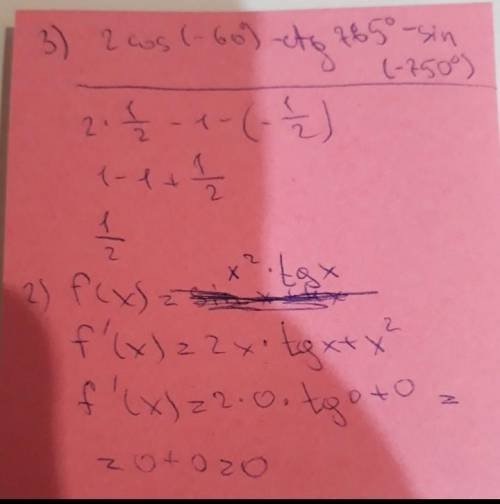 3) 2 cos(-60°) - ctg 765° - sin
(-750°)
2 · 1/2 - 1 - (-1/2)
1 - 1 + 1/2
1/2
2) f(x) = x² · tg x
f'(x) = 2x · tg x + x²
f'(x) = 2 · 0 · tg 0 + 0 =
= 0 + 0 = 0